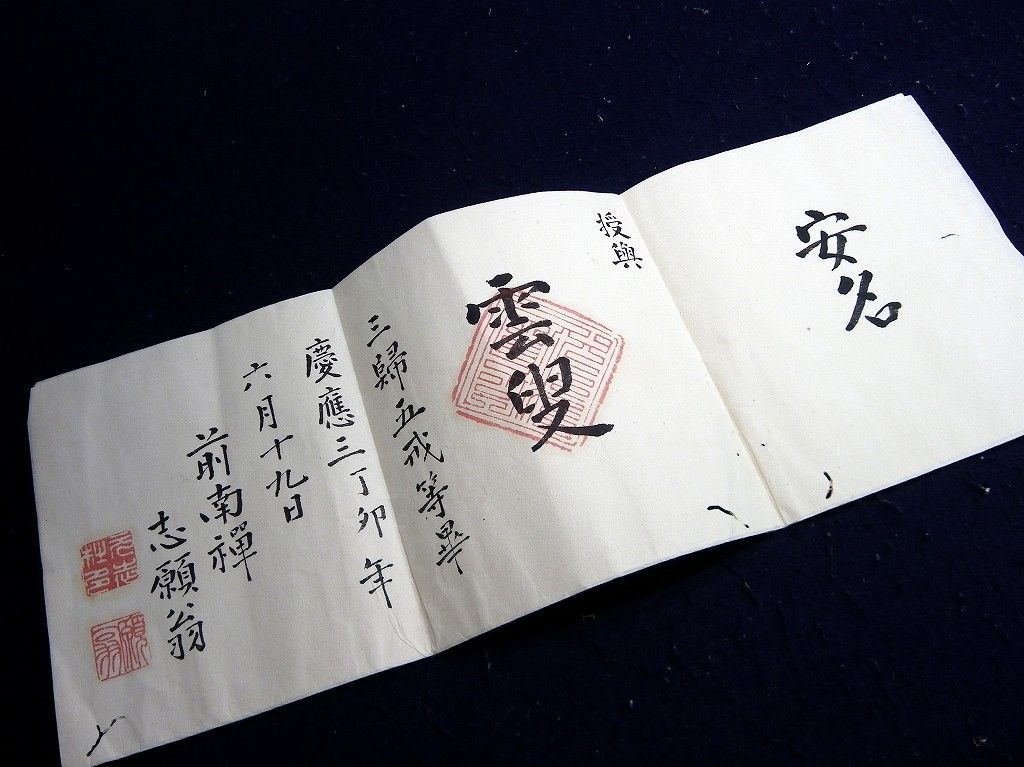 安名
授與
雲叟
三歸五戒等畢
慶應三丁卯年
六月十九日
前南禪
志願翁